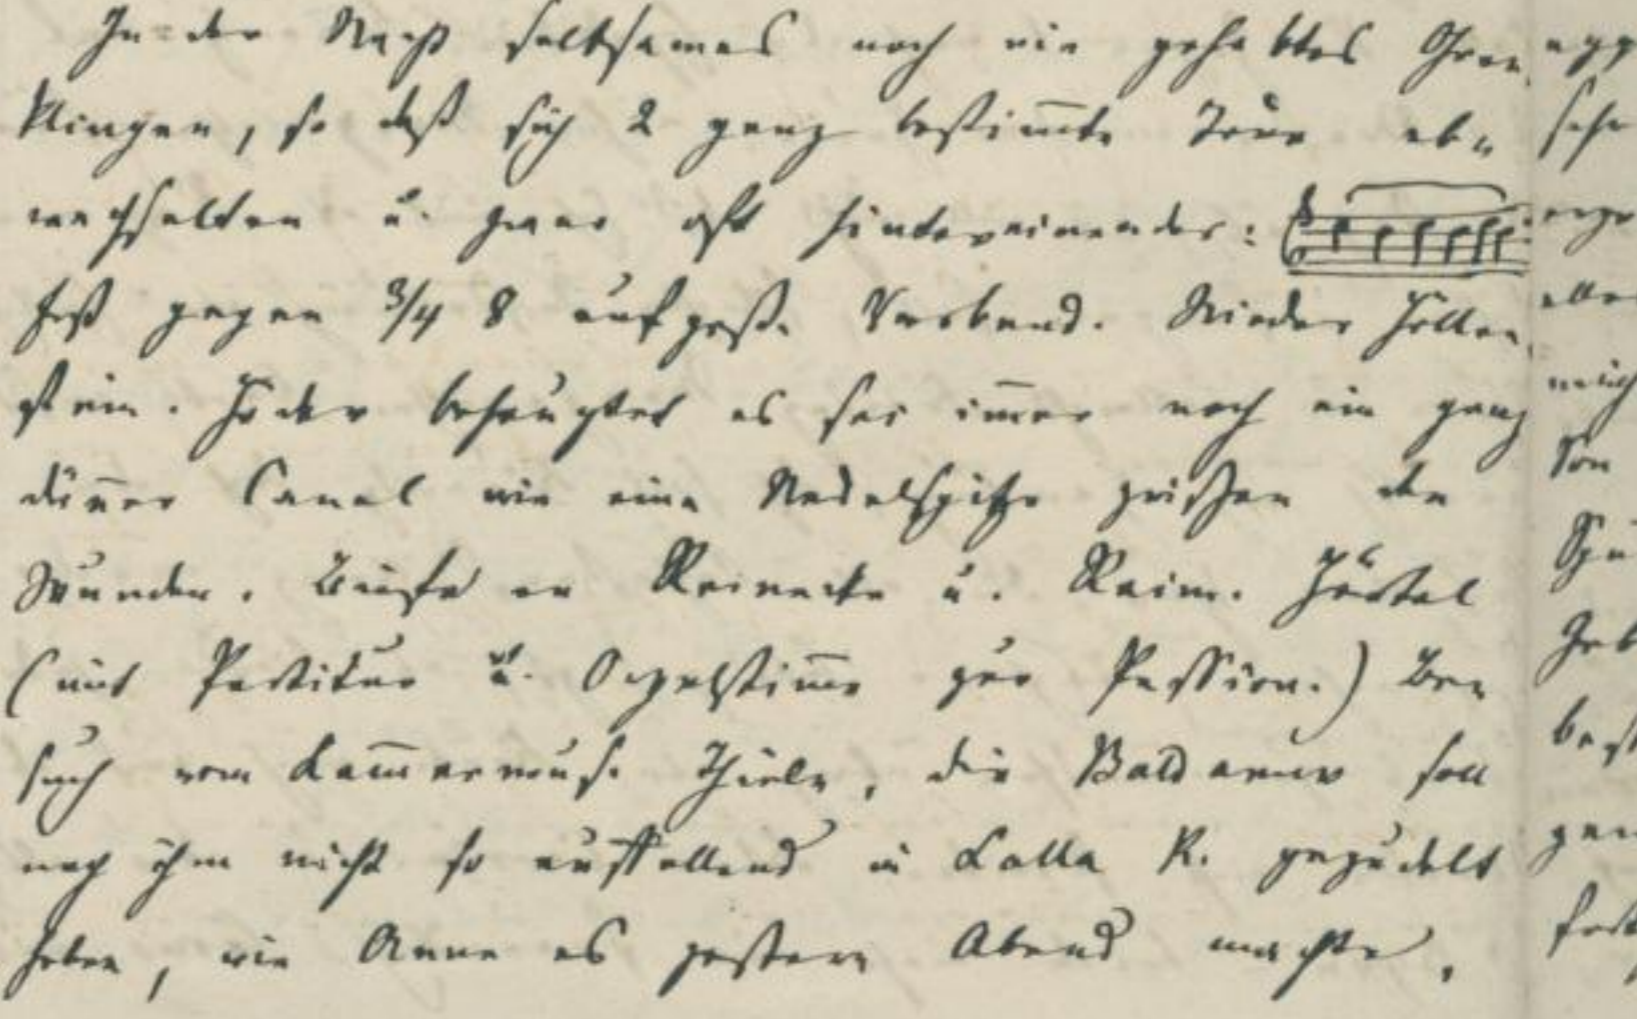 In der Nacht seltsames noch nie gehabtes Ohren
klingen, so daß sich 2 ganz bestim̅te Töne ab
wechselten u. zwar oft hintereinander:
Erst gegen 3/4 8 auf große Verband. Wieder Höllen
stein. Höder behauptet es sei im̅er noch ein ganz
dün̅er Canal wie eine Nadelspitze zwischen den
Wunden. Briefe an Reinecke u. Raim. Härtel
(mit Partitur u. Orgelstim̅e zur Passion.) Be
such vom Kam̅ermus. Thiele, die Baldamus soll
nach ihm nicht so auffallend in Lalla R. gepudelt
haben, wie Anna es gestern Abend machte.